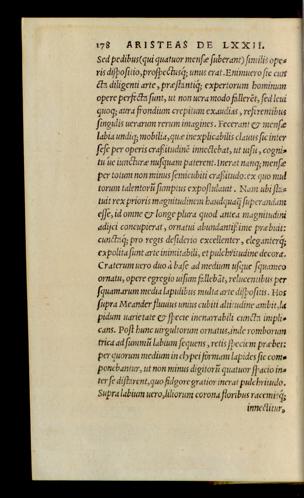 178 ARISTEAS DE LXXII.
Sed pedibus (qui quatuor mensæ suberant) similis ope-
ris dispositio, prospectusq́; unus erat. Enimuero sic cun
cta diligenti arte, præstantiq́; expertorum hominum
opere perfecta sunt, ut non uera modo fallerēt, sed leui
quoq; aura frondium crepitum exaudias, referentibus
singulis uerarum rerum imagines. Fecerant & mensæ
labia undiq; mobilia, quæ inexplicabilis clauus sic inter
sese per operis crassitudinē innectebat, ut uisu, cogni-
tu ue iuncturæ nusquam paterent. Inerat nanq; mensæ
per totum non minus semicubiti crassitudo: ex quo mul
torum talentorū sumptus expostulauit. Nam ubi sta-
tuit rex prioris magnitudinem haudquaq̃ superandam
esse, id omne & longe plura quod antea magnitudini
adijci concupierat, ornatui abundantissime præbuit:
cunctaq́; pro regis desiderio excellenter, eleganterq́;
expolita sunt arte inimitabili, et pulchritudine decora.
Craterum uero duo à base ad medium usque squameo
ornatu, opere egregio uisum fallebāt, relucentibus per
squamarum media lapidibus multa arte dispositis. Hos
supra Meander fluuius unius cubiti altitudine ambit, la
pidum uarietate & specie inenarrabili cuncta impli-
cans. Post hunc uirgultorum ornatus, inde romborum
trica ad summū labium sequens, retis speciem præbet:
per quorum medium in clypei formam lapides sic com-
ponebantur, ut non minus digitorū quatuor spacio in-
ter se distarent, quo fulgore gratior inerat pulchritudo.
Supra labium uero, liliorum corona floribus racemisq́;
innectitur,